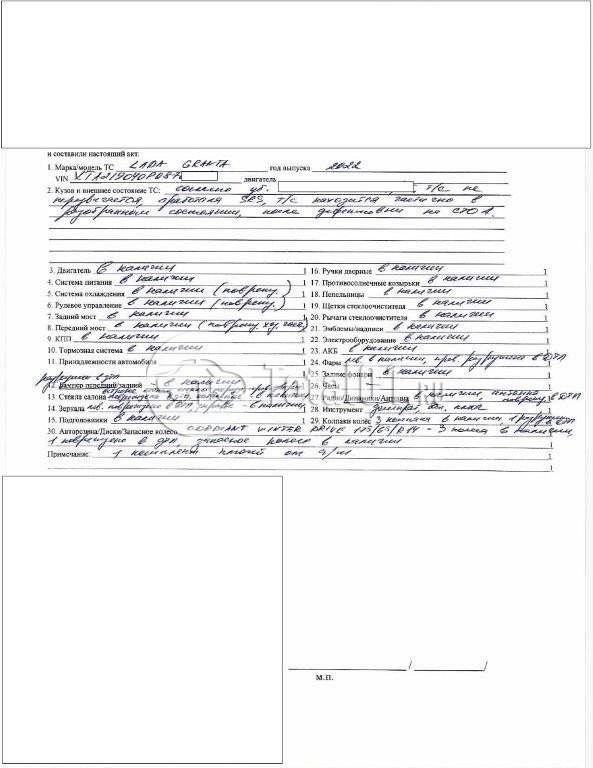 и составили настоящий акт.
1. Марка/модель ТС LADA GRANTA год выпуска 2022
VIN XTA219040P087 двигатель
2. Кузов и внешнее состояние ТС: согласно уб. т/с не
передвигается, сработала SRS, т/с находится частично в
разобранном состоянии, после дефектовки на СТОА.
3. Двигатель в наличии 1
4. Система питания в наличии 1
5. Система охлаждения в наличии (поврежд.) 1
6. Рулевое управление в наличии (поврежд.) 1
7. Задний мост в наличии 1
8. Передний мост в наличии (поврежд. 1
9. КПП в наличии 1
10. Тормозная система в наличии 1
11. Принадлежности автомобиля
разрушен в ДТП
Бампер передний/задний в наличии
13. Стекла салона в наличии
14. Зеркала лев. повреждено в ДТП, правое - в наличии
15. Подголовники в наличии 1
16. Ручки дверные в наличии 1
17. Противосолнечные козырьки в наличии 1
18. Пепельницы в наличии 1
19. Щетки стеклоочистителя в наличии 1
20. Рычаги стеклоочистителя в наличии 1
21. Эмблемы/надписи в наличии 1
22. Электрооборудование в наличии 1
23. АКБ в наличии 1
24. Фары лев. в наличии, прав. разрушена в ДТП
25. Задние фонари в наличии 1
26. Часы 1
27. Радио/Динамики/Антенна в наличии, антенна поврежд. в ДТП
28. Инструмент домкрат, бал. ключ
29. Колпаки колес 3 колпака в наличии, 1 разрушен в ДТП
30. Авторезина/Диски/Запасное колесо CORDIANT WINTER DRIVE 175/65/R14 - 3 колеса в наличии,
1 повреждено в ДТП, запасное колесо в наличии 1
Примечание: 1 комплект ключей от а/м 1
1
/ /
М.П.